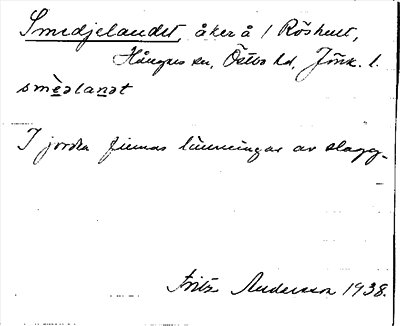 Smedjelandet, åker å 1 Röshult,
Hångers sn, Östbo hd, Jönk. l.
smèdlandt
I jorden finnas lämningar av slagg.
Fritz Andersson 1938.